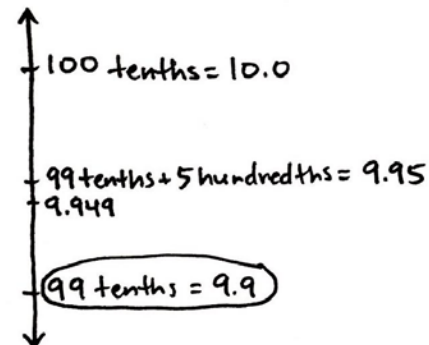 100 tenths = 10.0
99 tenths + 5 hundredths = 9.95
9.949
99 tenths = 9.9